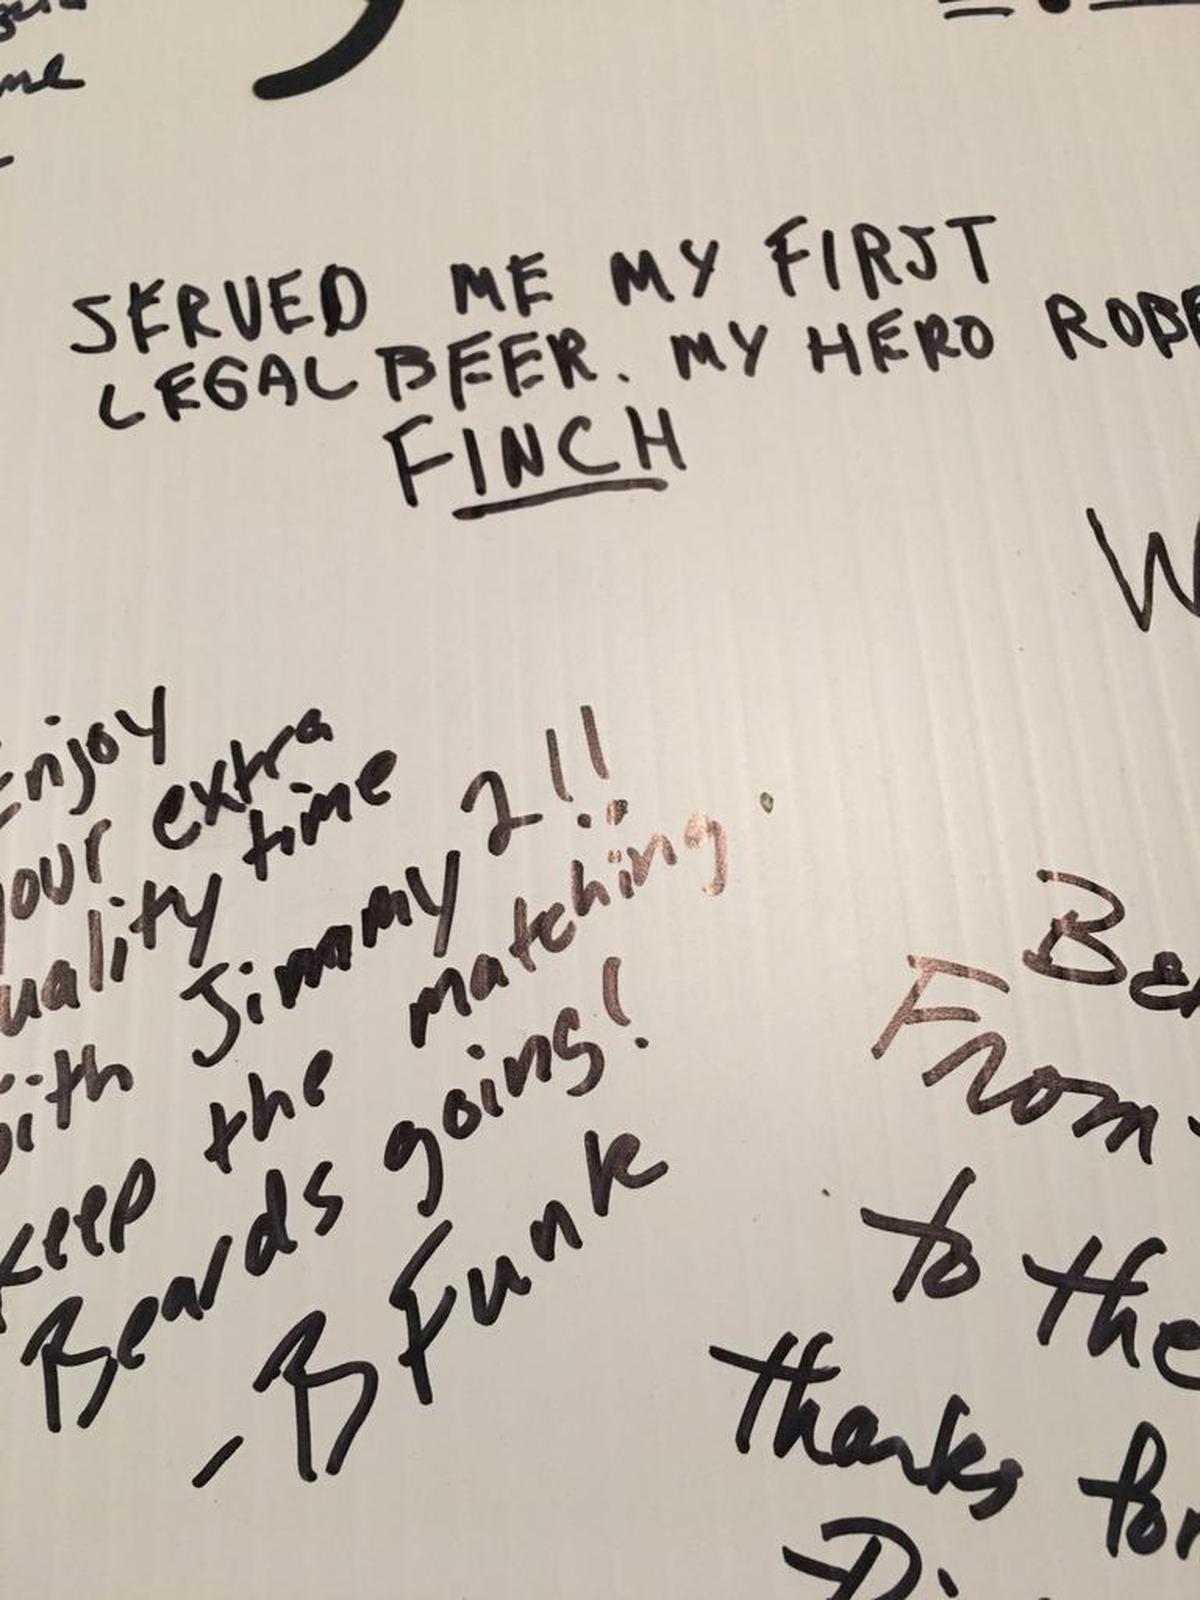 me
SERVED ME MY FIRST
LEGAL BEER. MY HERO ROBE
FINCH
W
Enjoy
your extra
quality time
with Jimmy 2!!
keep the matching
Beards going!
- B Funk
Ben
From
to the
thanks for
Di